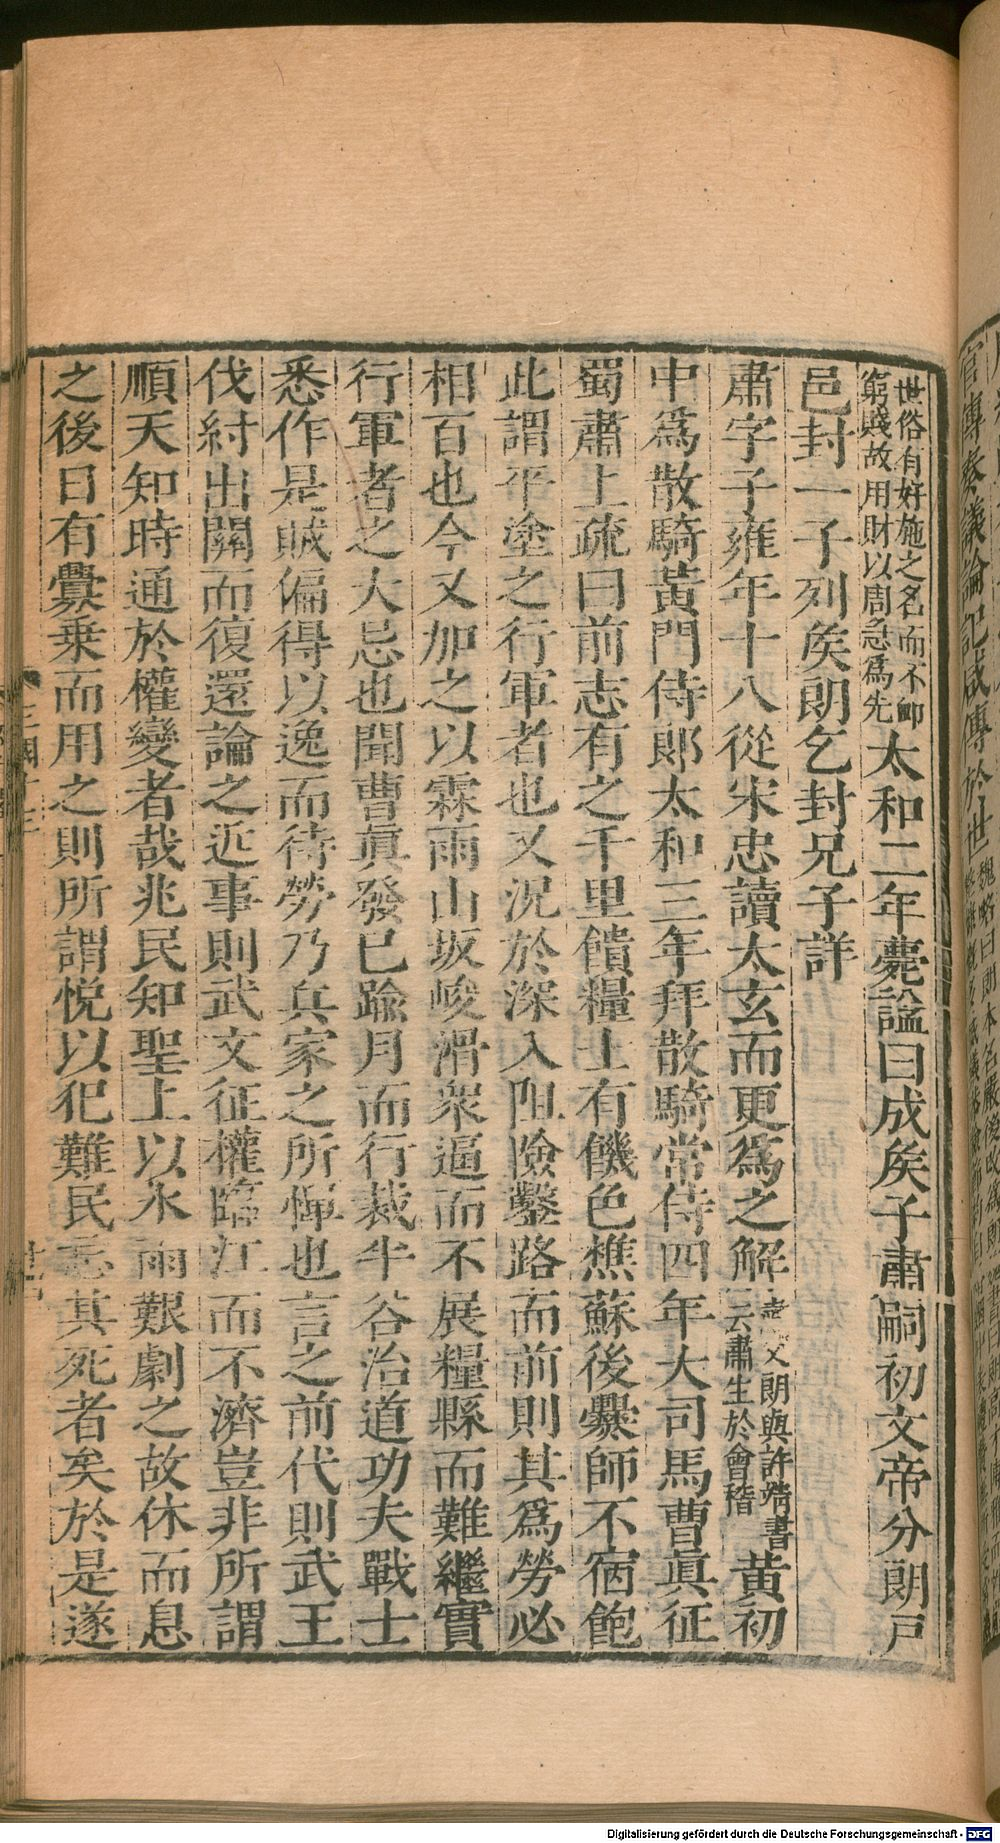 世俗有好施之名而不卹
窮賤故用財以周急爲先
太和二年薨諡曰成矦子肅嗣初文帝分朗戸
邑封一子列矦朗乞封兄子詳
肅字子雍年十八從宋忠讀太玄而更爲之解
父朗與許靖書
云肅生於會稽
黃初
中爲散騎黃門侍郎太和三年拜散騎常侍四年大司馬曹眞征
蜀肅上疏曰前志有之千里饋糧士有饑色樵蘇後爨師不宿飽
此謂平塗之行軍者也又況於深入阻險鑿路而前則其爲勞必
相百也今又加之以霖雨山坂峻滑衆逼而不展糧縣而難繼實
行軍者之大忌也聞曹眞發已踰月而行裁半谷治道功夫戰士
悉作是賊偏得以逸而待勞乃兵家之所憚也言之前代則武王
伐紂出關而復還論之近事則武文征權臨江而不濟豈非所謂
順天知時通於權變者哉兆民知聖上以水雨艱劇之故休而息
之後日有釁乗而用之則所謂悅以犯難民忘其死者矣於是遂
三國十三
Digitalisierung gefördert durch die Deutsche Forschungsgemeinschaft - DFG